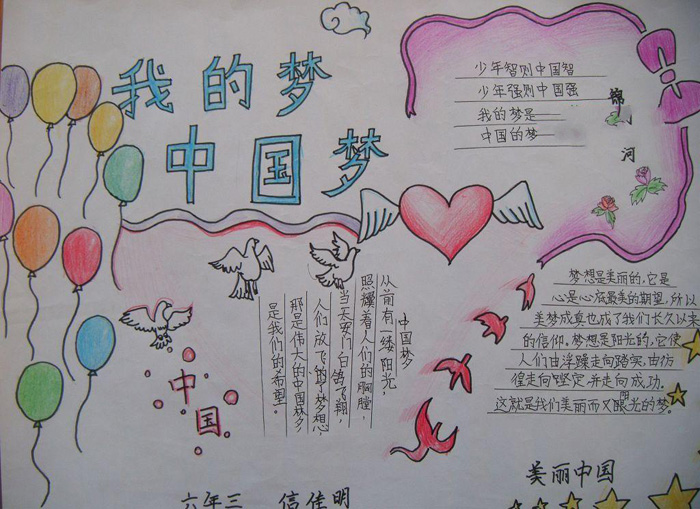 我的梦
中国梦
少年智则中国智
少年强则中国强
我的梦是——
中国的梦——
锦
河
中国梦
从前有一缕阳光，
照耀着人们的胸膛，
当天安门白鸽飞翔，
人们放飞的梦想，
那是伟大的中国梦，
是我们的希望。
中国
梦想是美丽的，它是
心是心放最美的期望，所以
美梦成真也成了我们长久以来
的信仰。梦想是阳光的，它使
人们由浮躁走向踏实，由彷
徨走向坚定，并走向成功。
这就是我们美丽而又阳光的梦。
美丽中国
六年三 信佳明